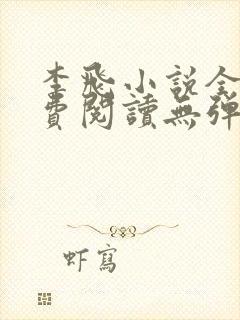 李飛小說全
費閱讀無彈
虾寫